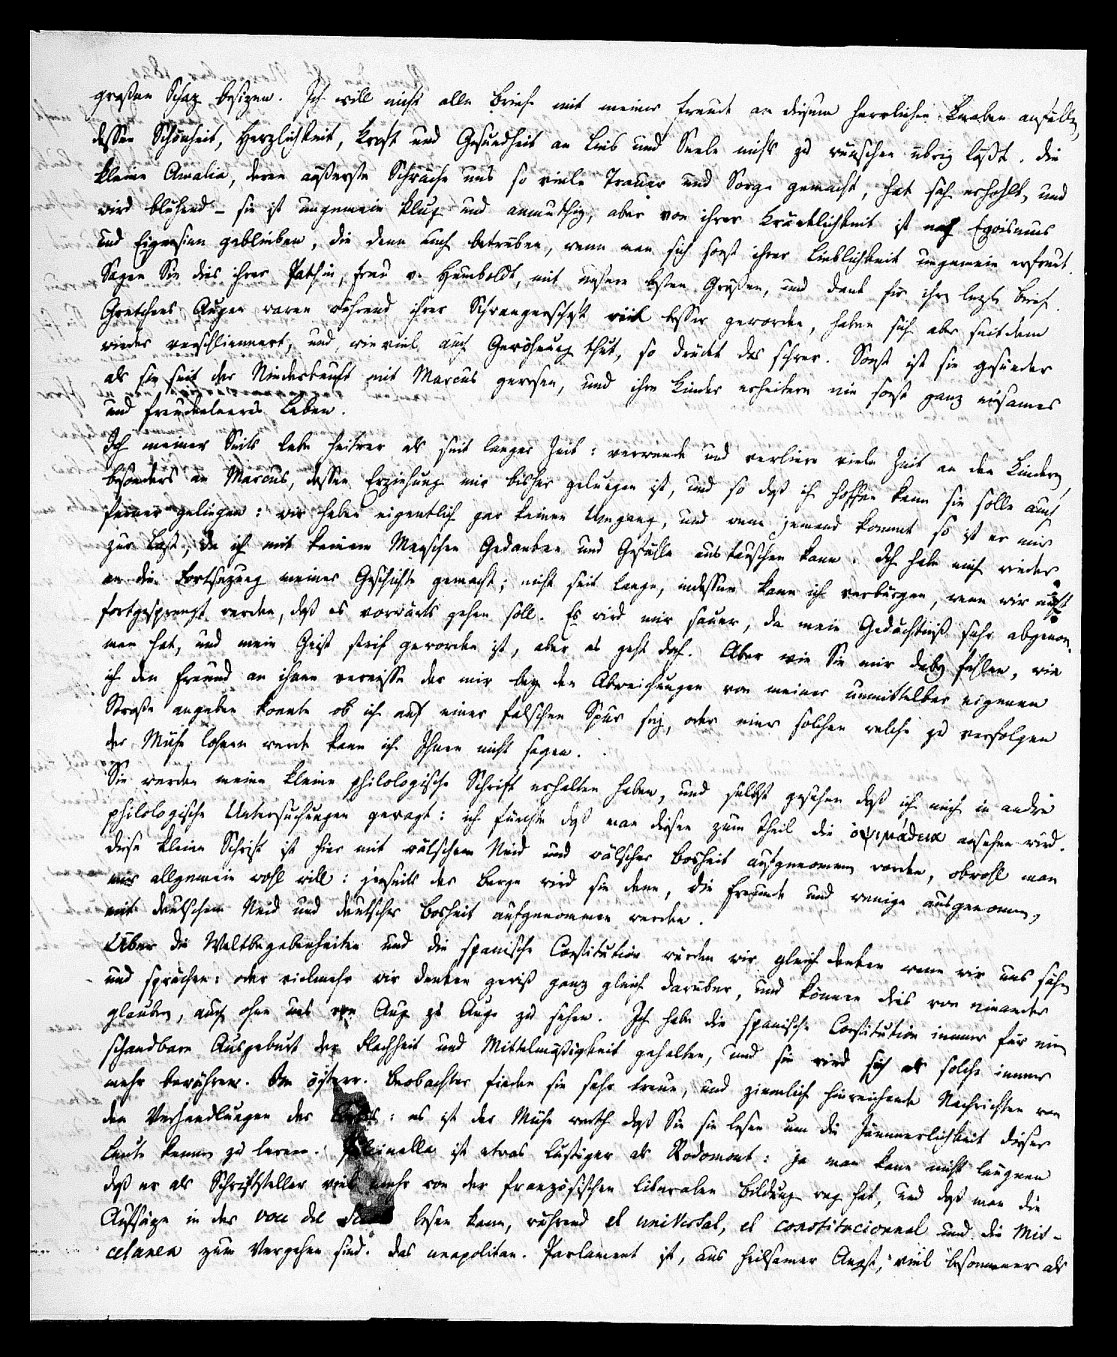 großen Schaz besizen. Ich will nicht alle Briefe mit meiner Freude an diesem herrlichen Knaben anfüllen,
dessen Schönheit, Herzlichkeit, Kraft und Gesundheit an Leib und Seele nichts zu wünschen übrig läßt. Die
kleine Amalia, deren äußerste Schwäche uns so viele Trauer und Sorge gemacht, hat sich erhohlt, und
wird blühend – sie ist ungemein klug und anmuthig, aber von ihrer Kränklichkeit ist noch Egoismus
und Eigensinn geblieben, die denn auch betrüben, wenn man sich sonst ihrer Lieblichkeit ungemein erfreut.
Sagen Sie dies ihrer Pathin, Frau v. Humboldt, mit unsern besten Grüßen, und Dank für ihren lezten Brief.
Gretchens Augen waren während ihrer Schwangerschaft viel besser geworden, haben sich aber seitdem
wieder verschlimmert, und, wie viel auch Gewöhnung thut, so drückt das schwer. Sonst ist sie gesünder
als sie seit der Niederkunft mit Marcus gewesen, und ihre Kinder erheitern ein sonst ganz einsames
und freudenleeres Leben.
Ich meiner Seits lebe heitrer als seit langer Zeit: verwende und verliere viele Zeit an den Kindern,
besonders an Marcus, dessen Erziehung mir bisher gelungen ist, und so daß ich hoffen kann sie solle auch
ferner gelingen: wir haben eigentlich gar keinen Umgang, und wenn jemand kommt so ist er mir
zur Last, da ich mit keinem Menschen Gedanken und Gefühle austauschen kann. Ich habe mich wieder
an die Fortsezung meiner Geschichte gemacht; nicht seit lange, indessen kann ich verbürgen, wenn wir nicht
fortgesprengt werden, daß es vorwärts gehen soll. Es wird mir sauer, da mein Gedächtniß sehr abgenom-
men hat, und mein Geist steif geworden ist, aber es geht doch. Aber wie Sie mir dabey fehlen, wie
ich den Freund an ihnen vermisse der mir bey den Abweichungen von meiner unmittelbar eigenen
Straße angeben konnte ob ich auf einer falschen Spur sey, oder einer solchen welche zu verfolgen
der Mühe lohnen werde kann ich Ihnen nicht sagen.
Sie werden meine kleine philologische Schrift erhalten haben, und selbst gesehen daß ich mich in andre
philologische Untersuchungen gewagt: ich fürchte daß man diesen zum Theil die ansehen wird.
Diese kleine Schrift ist hier mit wälschem Neid und wälscher Bosheit aufgenommen worden, obwohl man
mir allgemein wohl will: jenseits der Berge wird sie denn, die Freunde und wenige ausgenommen,
mit deutschem Neid und deutscher Bosheit aufgenommen werden.
Über die Weltbegebenheiten und die spanische Constitution würden wir gleich denken wenn wir uns sähen
und sprächen: oder vielmehr wir denken gewiß ganz gleich darüber, und können dies von einander
glauben, auch ohne uns von Aug zu Auge zu sehen. Ich habe die spanische Constitution immer für eine
schandbare Ausgeburt der Flachheit und Mittelmäßigkeit gehalten, und sie wird sich als solche immer
mehr bewähren. Im österr. Beobachter finden sie sehr treue, und ziemlich hinreichende Nachrichten von
den Verhandlungen der : es ist der Mühe werth daß Sie sie lesen um die Jämmerlichkeit dieser
Leute kennen zu lernen. Pulcinella ist etwas lustiger als Rodomont: ja man kann nicht läugnen
daß er als Schriftsteller viel mehr von der französischen liberalen Bildung weg hat, und daß man die
Aufsäze in der voce del lesen kann, während el universal, el constitucionnel und die Mis-
celanea zum Vergehen sind. Das neapolitan. Parlament ist, aus heilsamer Angst, viel besonnener als